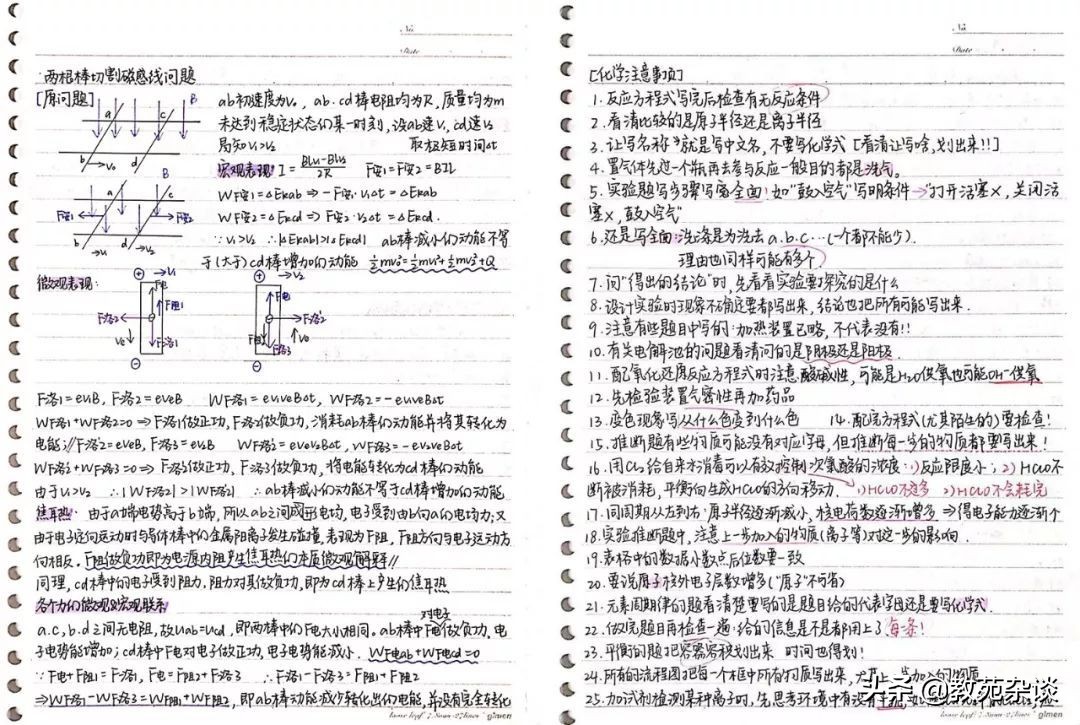 No
Date
两根棒切割磁感线问题
[原问题]
B
a
c
b
v₀
d
ab初速度为v₀, ab、cd棒电阻均为R, 质量均为m
未达到稳定状态的某一时刻, 设ab速v₁, cd速v₂
易知v₁>v₂ 取极短时间Δt
宏观表现: I = (BLv₁-BLv₂)/2R F安1=F安2=BIL
W F安1=ΔEkab ⇒ -F安1·v₁Δt=ΔEkab
W F安2=ΔEkcd ⇒ F安2·v₂Δt=ΔEkcd.
∵v₁>v₂ ∴|ΔEkab|>|ΔEkcd| ab棒减小的动能不等
于(大于)cd棒增加的动能 ½mv₀²=½mv₁²+½mv₂²+Q
B
a
c
F安1
F安2
b
v₁
d
v₂
微观表现:
v₁
F电
F阻1
F洛2
F洛1
ve
v₂
F电
F洛2'
F阻2
F洛3
ve
F洛1=ev₁B, F洛2=eveB WF洛1=ev₁veBΔt, WF洛2=-ev₁veBΔt
WF洛1+WF洛2=0 ⇒ F洛1做正功, F洛2做负功, 消耗ab棒的动能并将其转化为
电能; // F洛2'=eveB, F洛3=ev₂B WF洛2'=evev₂BΔt, WF洛3=-ev₂veBΔt
WF洛2'+WF洛3=0 ⇒ F洛2'做正功, F洛3做负功, 将电能转化为cd棒的动能
由于v₁>v₂ ∴|WF洛2|>|WF洛2'| ∴ab棒减小的动能不等于cd棒增加的动能
焦耳热: 由于a端电势高于b端, 所以ab之间成电场, 电子受到由b向a的电场力; 又
由于电子定向运动时与导体棒中的金属阳离子发生碰撞, 表现为F阻, F阻方向与电子运动方
向相反. F阻做负功即为电源内阻产生焦耳热的本质微观解释 //
同理, cd棒中的电子受到阻力, 阻力对其做负功, 即为cd棒上产生的焦耳热
各个力的微观及宏观联系
a.c, b.d之间无电阻, 故Uab=Ucd, 即两棒中的F电大小相同. ab棒中F电对电子做负功, 电
子电势能增加; cd棒中F电对电子做正功, 电子电势能减小. WF电ab+WF电cd=0
∵F电+F阻1=F洛1, F电=F阻2+F洛3 ∴F洛1-F洛3=F阻1+F阻2
⇒WF洛1-WF洛3=WF阻1+WF阻2, 即ab棒动能减少转化出的电能, 并没有完全转化
No
Date
[化学注意事项]
1. 反应方程式写完后检查有无反应条件
2. 看清比较的是原子半径还是离子半径
3. 让写"名称"就是写中文名, 不要写化学式 [看清让写啥, 划出来!!]
4. 置气体先过一个瓶再去参与反应一般目的都是洗气。
5. 实验题写步骤写需全面! 如"鼓入空气"写明条件→"打开活塞X, 关闭活
塞X, 鼓入空气"
6. 还是写全面: 洗涤是为洗去a.b.c…(一个都不能少).
理由也同样可能有多个.
7. 问"得出的结论"时, 先看看实验要探究的是什么
8. 设计实验时现象不有定要都写出来, 结论也把所有可能写出来.
9. 注意有些题目中写的: 加热装置已略, 不代表没有!!
10. 有关电解池的问题看清问的是阴极还是阳极.
11. 配氧化还原反应方程式时注意酸碱性, 可能是H₂O供氧也可能OH⁻供氧
12. 先检验装置气密性再加药品
13. 变色现象写从什么色变到什么色 14. 配完方程式(尤其陌生的)要检查!
15. 推断题有些物质可能没有对应字母, 但推断每一步的物质都要写出来!
16. 同Cl₂给自来水消毒可以有效控制次氯酸的浓度: 1)反应限度小; 2)HClO不
断被消耗, 平衡向生成HClO的方向移动. →1)HClO不过多 2)HClO不会耗完
17. 同周期从左到右: 原子半径逐渐减小, 核电荷数逐渐增多⇒得电子能力逐渐个
18. 实验推断题中, 注意上一步加入的物质(离子等)对这一步的影响.
19. 表格中的数据小数点后位数要一致
20. 要说原子核外电子层数增多("原子"不可省)
21. 元素周期律的题看清楚要写的是题目给的代表字母还是要写化学式.
22. 做完题目再检查一遍: 给的信息是不是都用上了 每条!
23. 平衡的题把容器容积划出来 时间也得划!
24. 所有的流程图把每一个框中所有的物质写出来, 尤其上一步加入的物质
25. 加试剂检测某种离子时, 先思考环境中有没有干扰
头条 @教苑杂谈
gimen